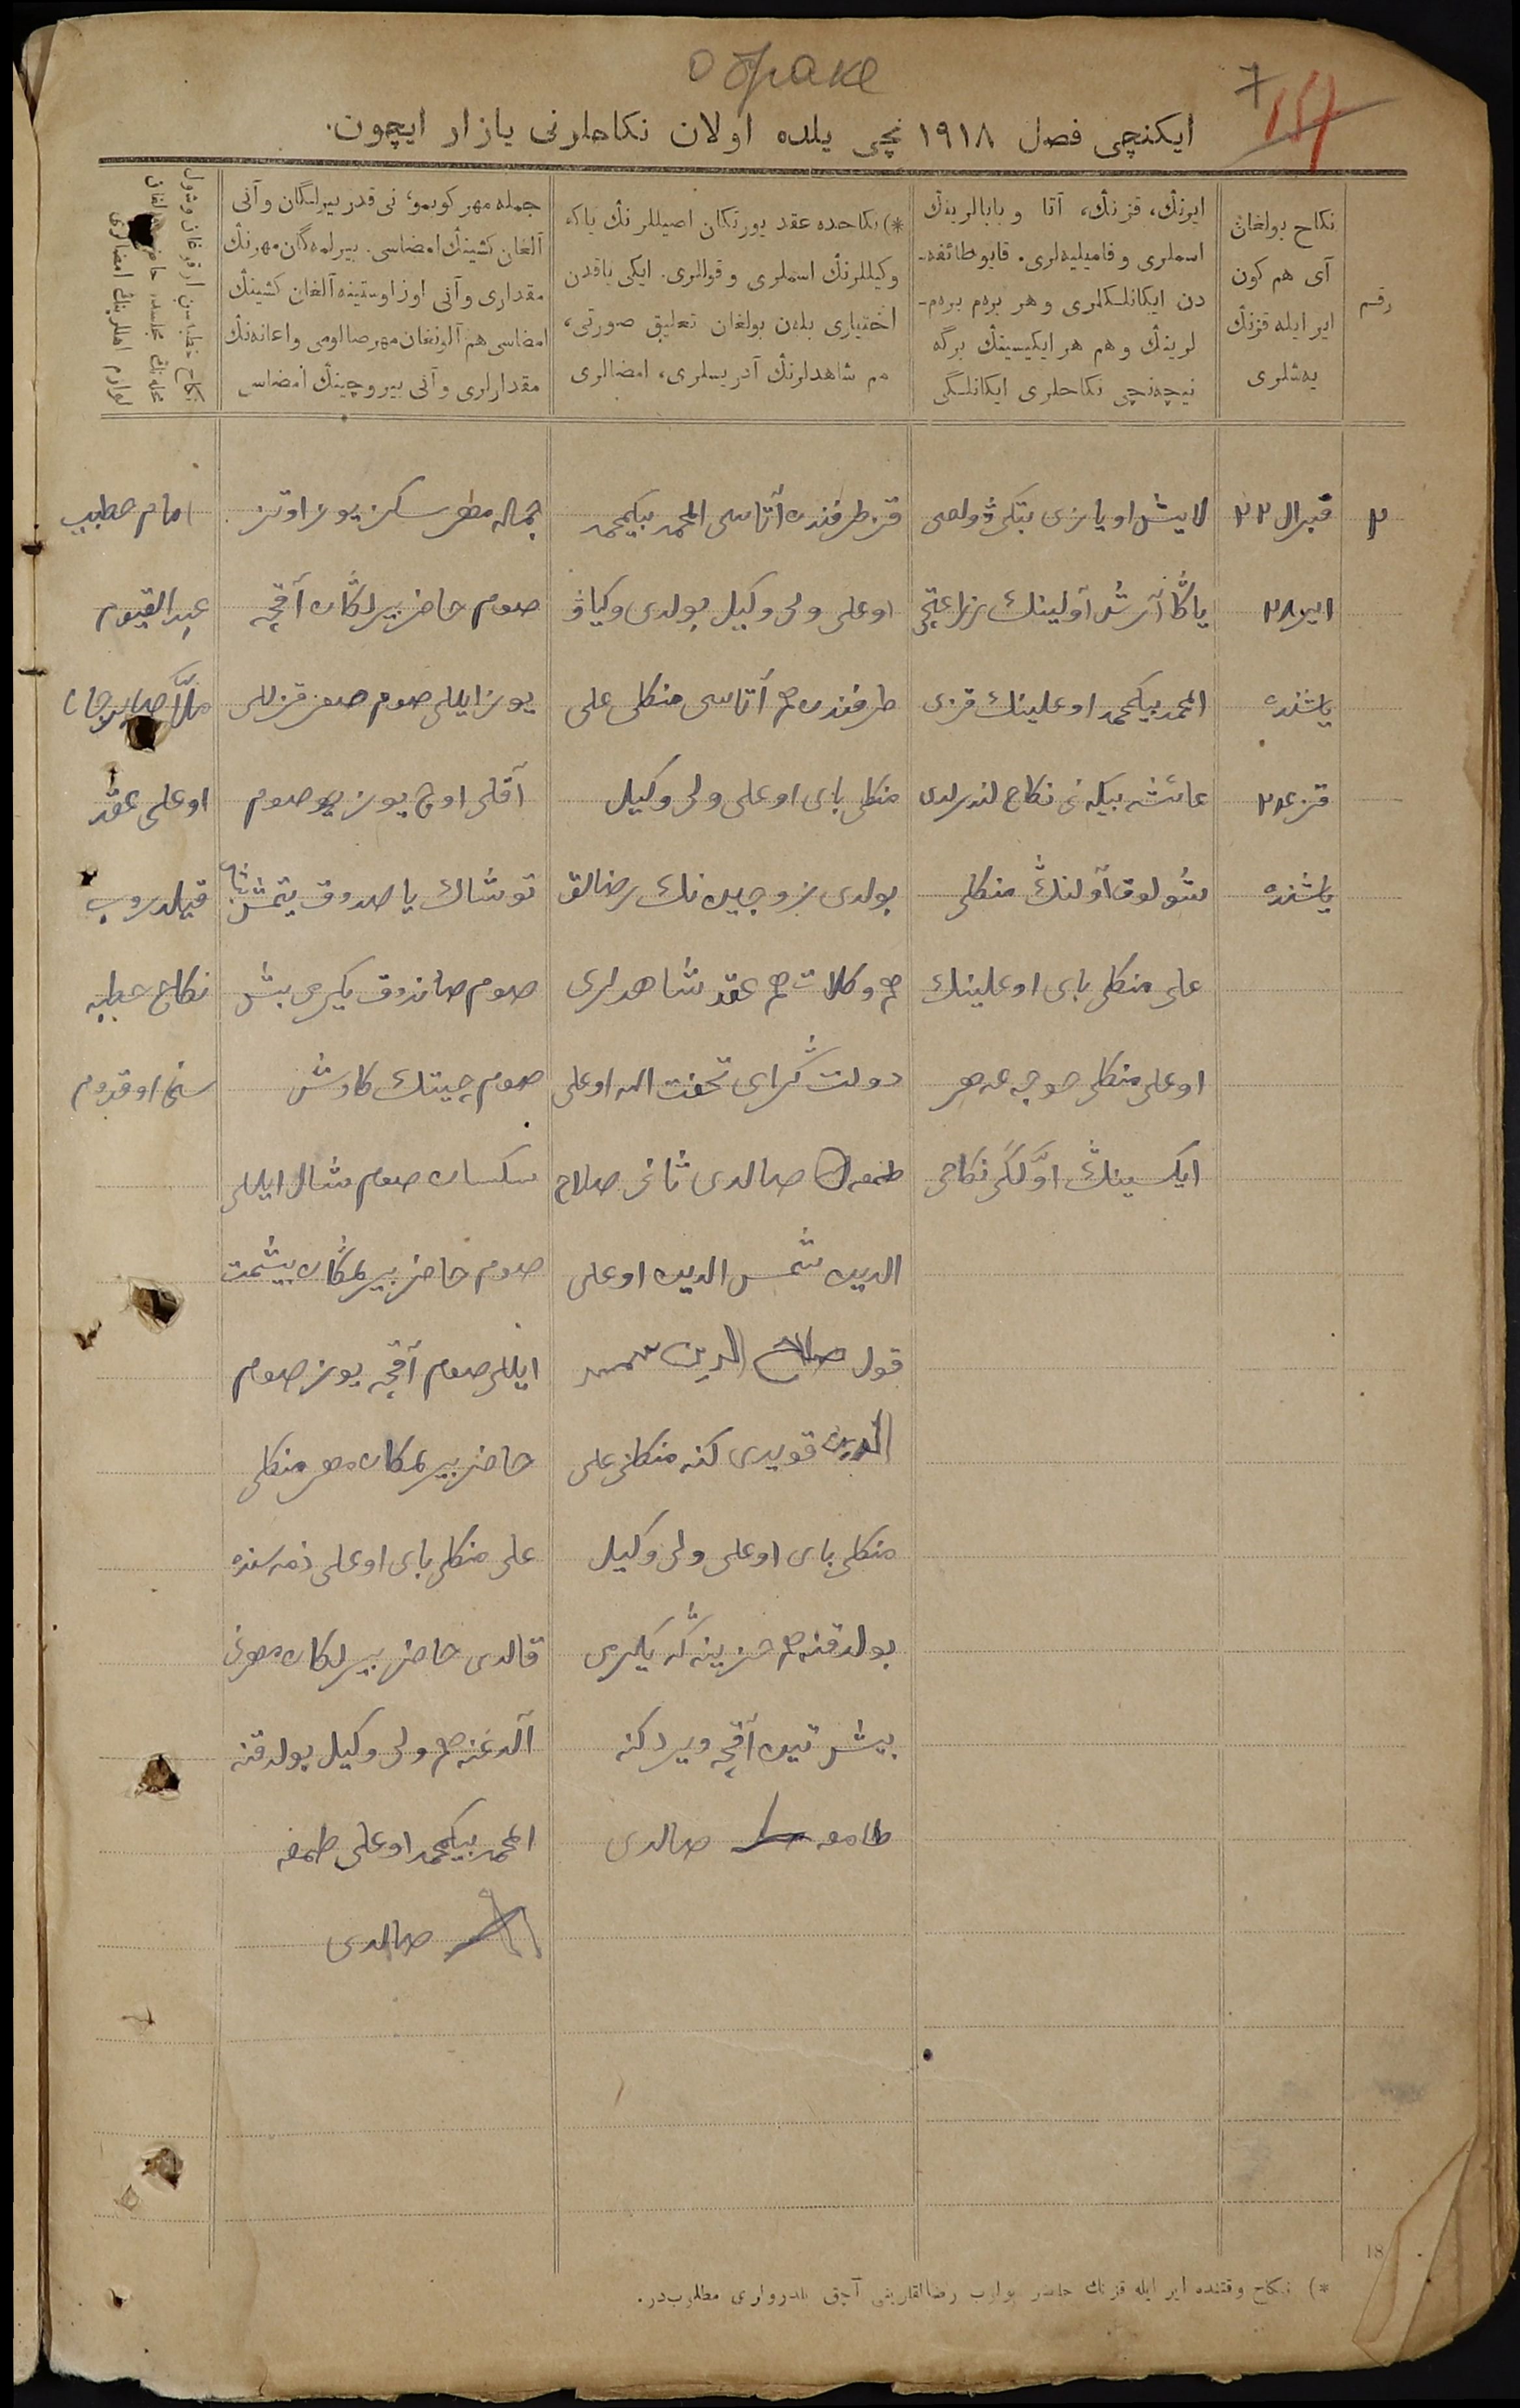 о браке
7
ایکنچی فصل ١٩١٨ نچی یلده اولان نکاحلرنی یازار ایچون.
رقم
نکاح بولغان
آی هم کون
ایر ایله قزنڭ
یەشلری
ایرنڭ، قزنڭ، آتا و بابالرینڭ
اسملری و فامیلیەلری. قایو طائفه-
دن ایکانلکلری و هر برەم برەم-
لرینڭ و هم هر ایکیسینڭ برگه
نیچەنچی نکاحلری ایکانلگی
*) نکاحده عقد یورتکان اصیللرنڭ یاکه
وکیللرنڭ اسملری و قواللری. ایکی یاقدن
اختیاری بلەن بولغان تعلیق صورتی،
هم شاهدلرنڭ آدریسلری، امضالری
جمله مهر کوبمو، نی قدر بیرلگان و آنی
آلغان کشینڭ امضاسی. بیرلمەگان مهرنڭ
مقداری و آنی اوز اوستینه آلغان کشینڭ
امضاسی هم آلونغان مهر صالومی و اعانەنڭ
مقدارلری و آنی بیروچینڭ امضاسی
٢
فبرال ٢٢
ایر ٢٨
یاشنده
قز ٢٤
یاشنده
لایش اویازی بتکی ۋولصی
یاڭا آرش آولینڭ زراعتچی
المحمد بیکمحمد اوغلینڭ قزی
عائشه بیکەنی نکاح لندرلدی
آولنڭ منکلی
علی منکلی بای اوغلینڭ
اوغلی منکلی خوجەغه هر
ایکسینڭ اوّلگی نکاحی
قز طرفندن آتاسی المحمد بیکمحمد
اوغلی ولی وکیل بولدی وکیاۋ
طرفندن هم آتاسی منکلی علی
منکلی بای اوغلی ولی وکیل
بولدی زوجین نڭ رضالق
هم وکلات هم عقد شاهدلری
دولت گرای تحفت الله اوغلی
طمغه صالدی ثانی صلاح
الدین شمس الدین اوغلی
قول صلاح الدین شمس
الدین قویدی کنه منکلی علی
منکلی بای اوغلی ولی وکیل
بولدقنه هم خزینەگه یکرمی
بیش تین آقچه ویردکنه
طامغه صالدی
جماله مهر سکز یوز اوتز
صوم حاضر بیرلگان آقچه
یوز ایللی صوم
آقلی اوچ یوز صوم
توشاك یاصدوق یتمش
صوم صاندوق یکرمی بش
صوم چیتك کاوش
سکسان صوم شال ایللی
صوم حاضر بیرلمگان بیشمت
ایللی صوم آقچه یوز صوم
حاضر بیرلمکان مهر منکلی
علی منکلی بای اوغلی ذمه سنده
قالدی حاضر بیرلکان مهرنی
آلدغنه هم ولی وکیل بولدقنه
المحمد بیکمحمد اوغلی طمغه
صالدی
امام خطیب
عبد القیوم
ملّا صابرجان
اوغلی عقد
قیلدروب
نکاح خطبه
سنی اوقدوم
18
*) نکاح وقتنده ایر ایله قزنڭ حاضر بولوب رضالقلرینی آچق بلدرولری مطلوب‌در.